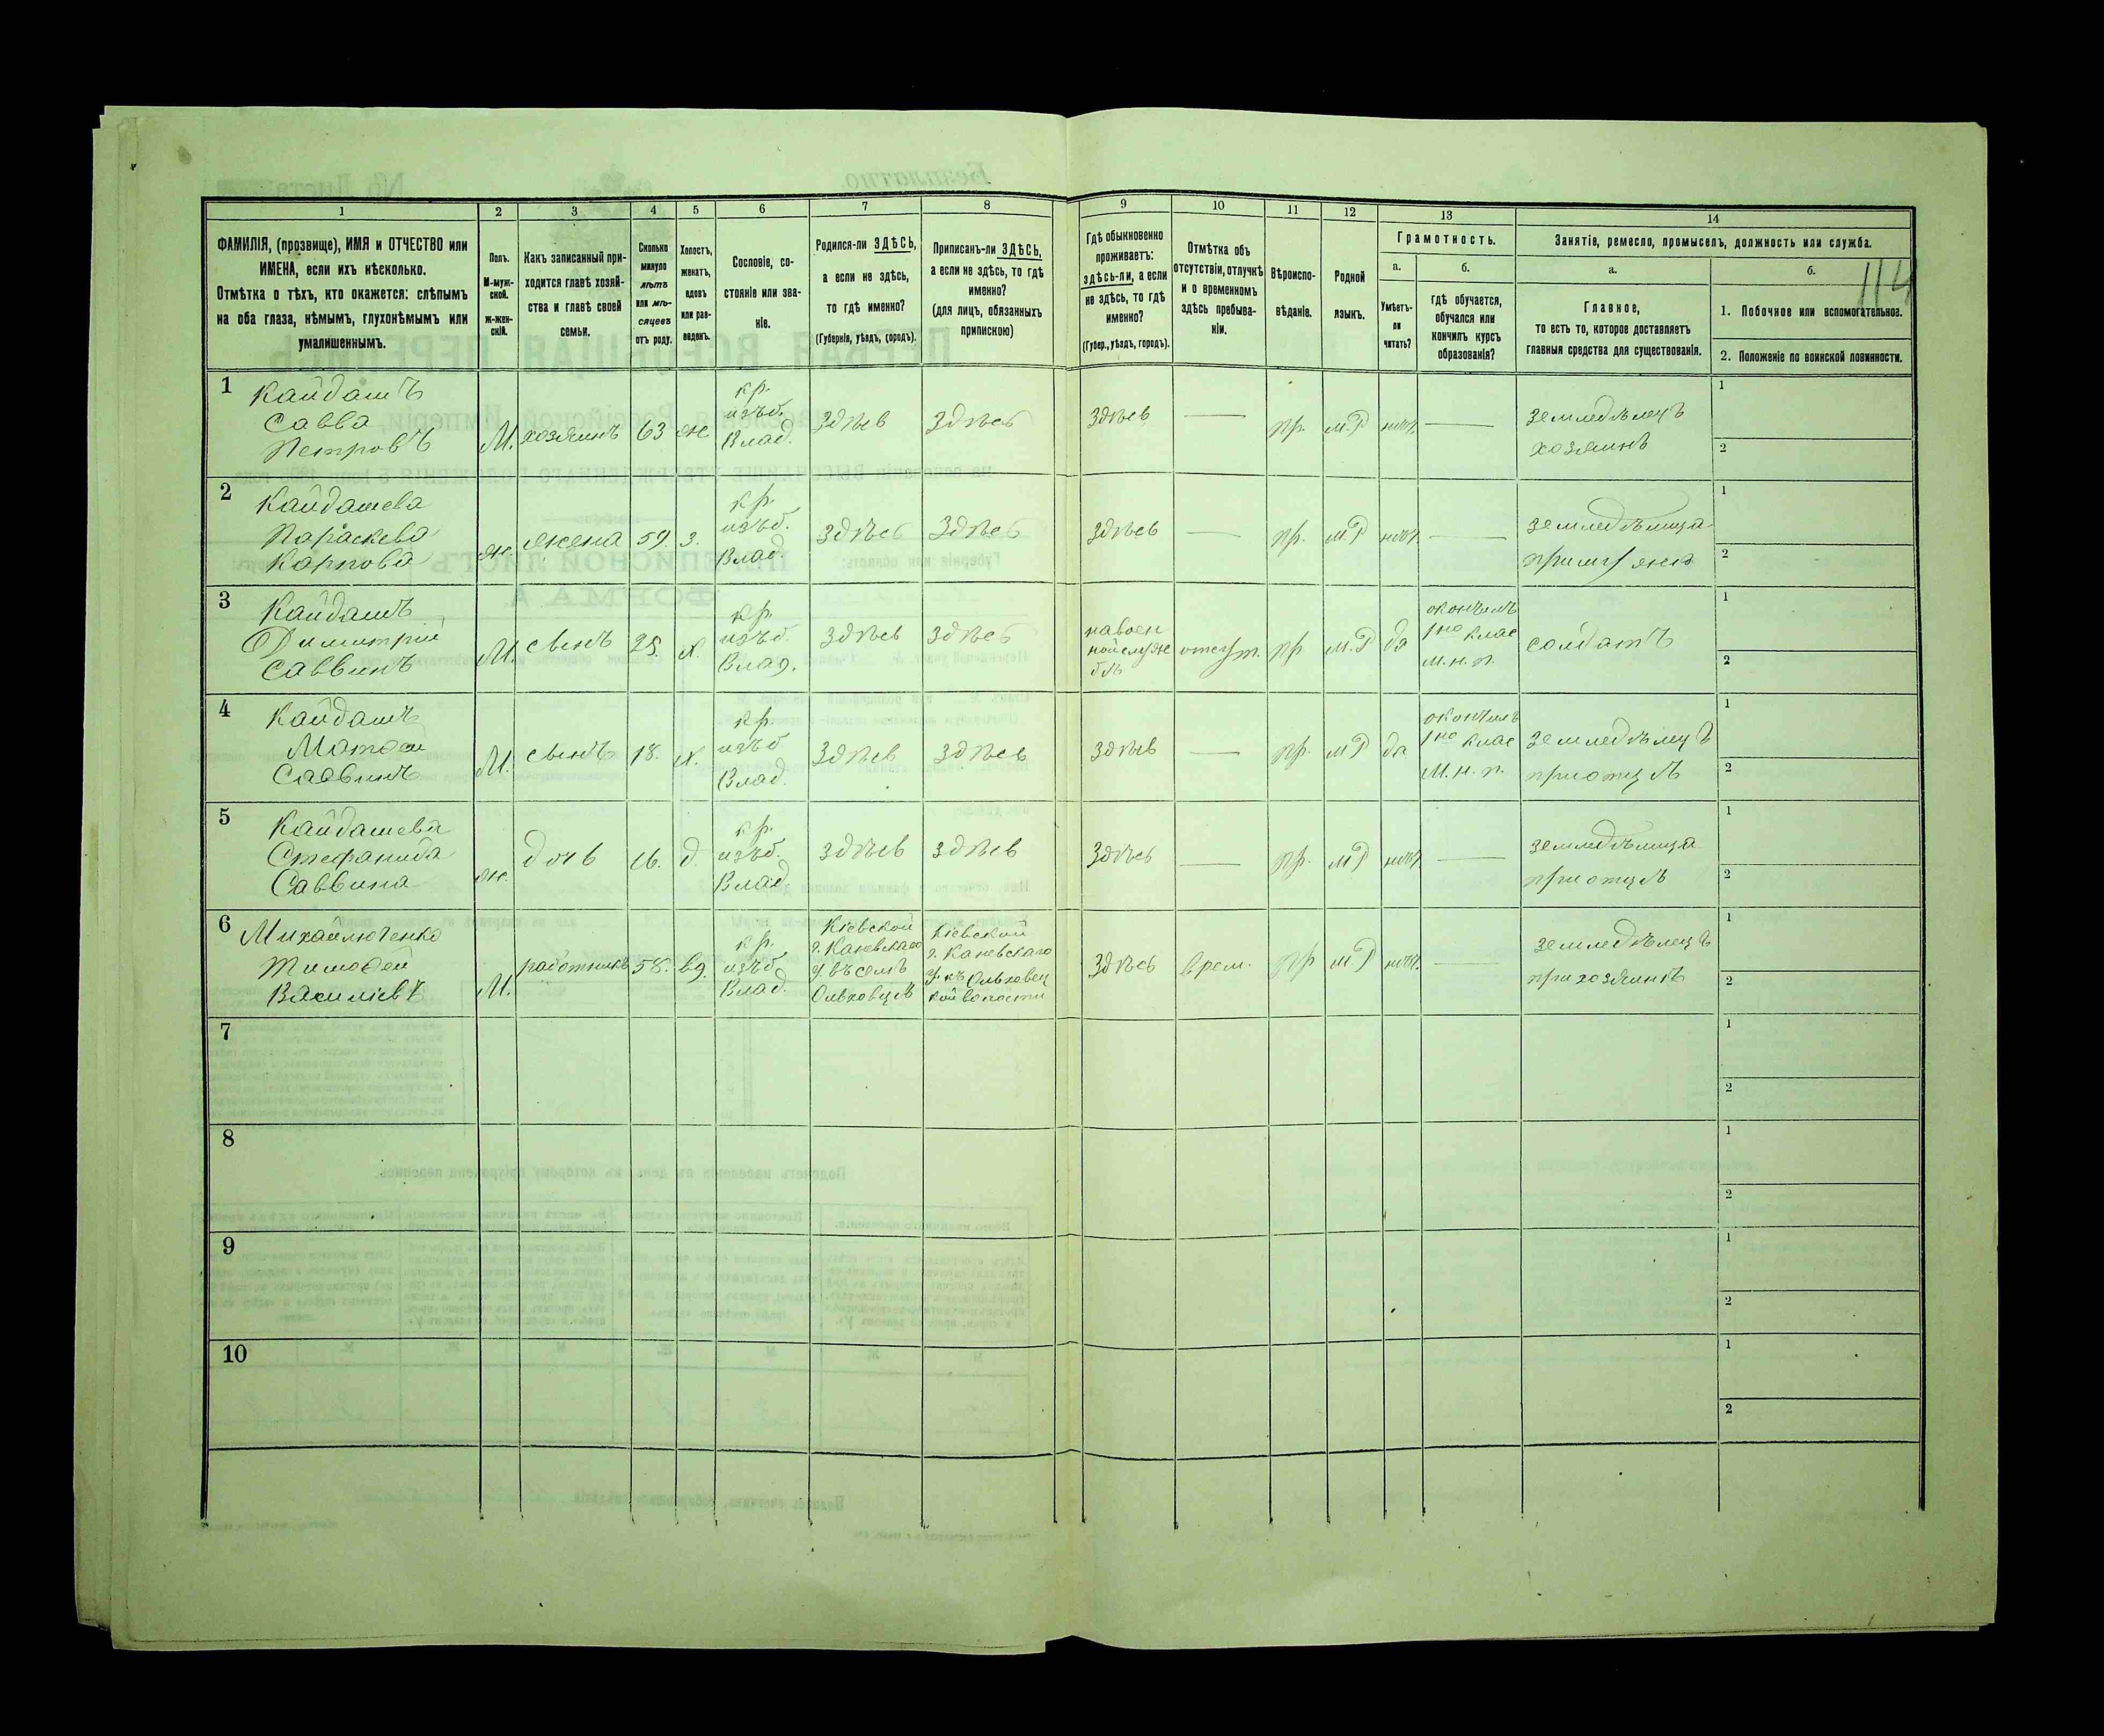 114
1 2 3 4 5 6 7 8 9 10 11 12 13 14
ФАМИЛІЯ, (прозвище), ИМЯ и ОТЧЕСТВО или
ИМЕНА, если ихъ нѣсколько.
Отмѣтка о тѣхъ, кто окажется: слѣпымъ
на оба глаза, нѣмымъ, глухонѣмымъ или
умалишеннымъ.
Полъ.
М-муж-
ской.
Ж-жен-
скій.
Какъ записанный при-
ходится главѣ хозяй-
ства и главѣ своей
семьи.
Сколько
минуло
лѣтъ
или мѣ-
сяцевъ
отъ роду.
Холостъ,
женатъ,
вдовъ
или раз-
веденъ.
Сословіе, со-
стояніе или зва-
ніе.
Родился-ли ЗДѢСЬ,
а если не здѣсь,
то гдѣ именно?
(Губернія, уѣздъ, городъ).
Приписанъ-ли ЗДѢСЬ,
а если не здѣсь, то гдѣ
именно?
(для лицъ, обязанныхъ
припискою)
Гдѣ обыкновенно
проживаетъ:
здѣсь-ли, а если
не здѣсь, то гдѣ
именно?
(Губер., уѣздъ, городъ).
Отмѣтка объ
отсутствіи, отлучкѣ
и о временномъ
здѣсь пребыва-
ніи.
Вѣроиспо-
вѣданіе.
Родной
языкъ.
Грамотность.
а.
Умѣетъ-
ли
читать?
б.
гдѣ обучается,
обучался или
кончилъ курсъ
образованія?
Занятіе, ремесло, промыселъ, должность или служба.
а.
Главное,
то есть то, которое доставляетъ
главныя средства для существованія.
б.
1. Побочное или вспомогательное.
2. Положеніе по воинской повинности.
1
Кайдашъ
Савва
Петровъ
М.
хозяинъ
63
ж
кр.
изъ б.
Влад.
Здѣсь
Здѣсь
Здѣсь
—
пр.
м.Р
нѣт.
—
земледѣлецъ
хозяинъ
1
2
2
Кайдашева
Параскева
Карпова
ж.
жена
59
з.
кр.
изъ б.
Влад.
Здѣсь
Здѣсь
Здѣсь
—
пр.
м.Р
нѣт
—
земледѣлица
при мужѣ
1
2
3
Кайдашъ
Димитрій
Саввинъ
М.
сынъ
25.
х.
кр.
изъ б.
Влад.
Здѣсь
Здѣсь
на воен
ной служ
бѣ
отсут.
пр
м.Р
да
окончилъ
1но клас
м. н. п.
солдатъ
1
2
4
Кайдашъ
Матѳей
Саввинъ
М.
сынъ
18.
х.
кр.
изъ б
Влад.
Здѣсь
Здѣсь
Здѣсь
—
пр.
м Р
да
окончилъ
1но клас
М. н. п.
земледѣлецъ
при отцѣ
1
2
5
Кайдашева
Стефанида
Саввина
ж.
дочь
16.
д.
кр.
изъ б.
Влад
Здѣсь
Здѣсь
Здѣсь
—
пр.
м Р
нѣт
—
земледѣлица
при отцѣ
1
2
6
Михайлюченко
Тимоѳей
Васильевъ
М.
работникъ
58.
вд.
кр.
изъ б
Влад.
Кіевской
г. Каневскаго
у. въ селѣ
Ольховцѣ
Кіевской
г. Каневскаго
у. къ Ольховец
кой волости
Здѣсь
врем.
пр
м.Р
нѣт.
—
земледѣлецъ
при хозяинѣ
1
2
7
1
2
8
1
2
9
1
2
10
1
2